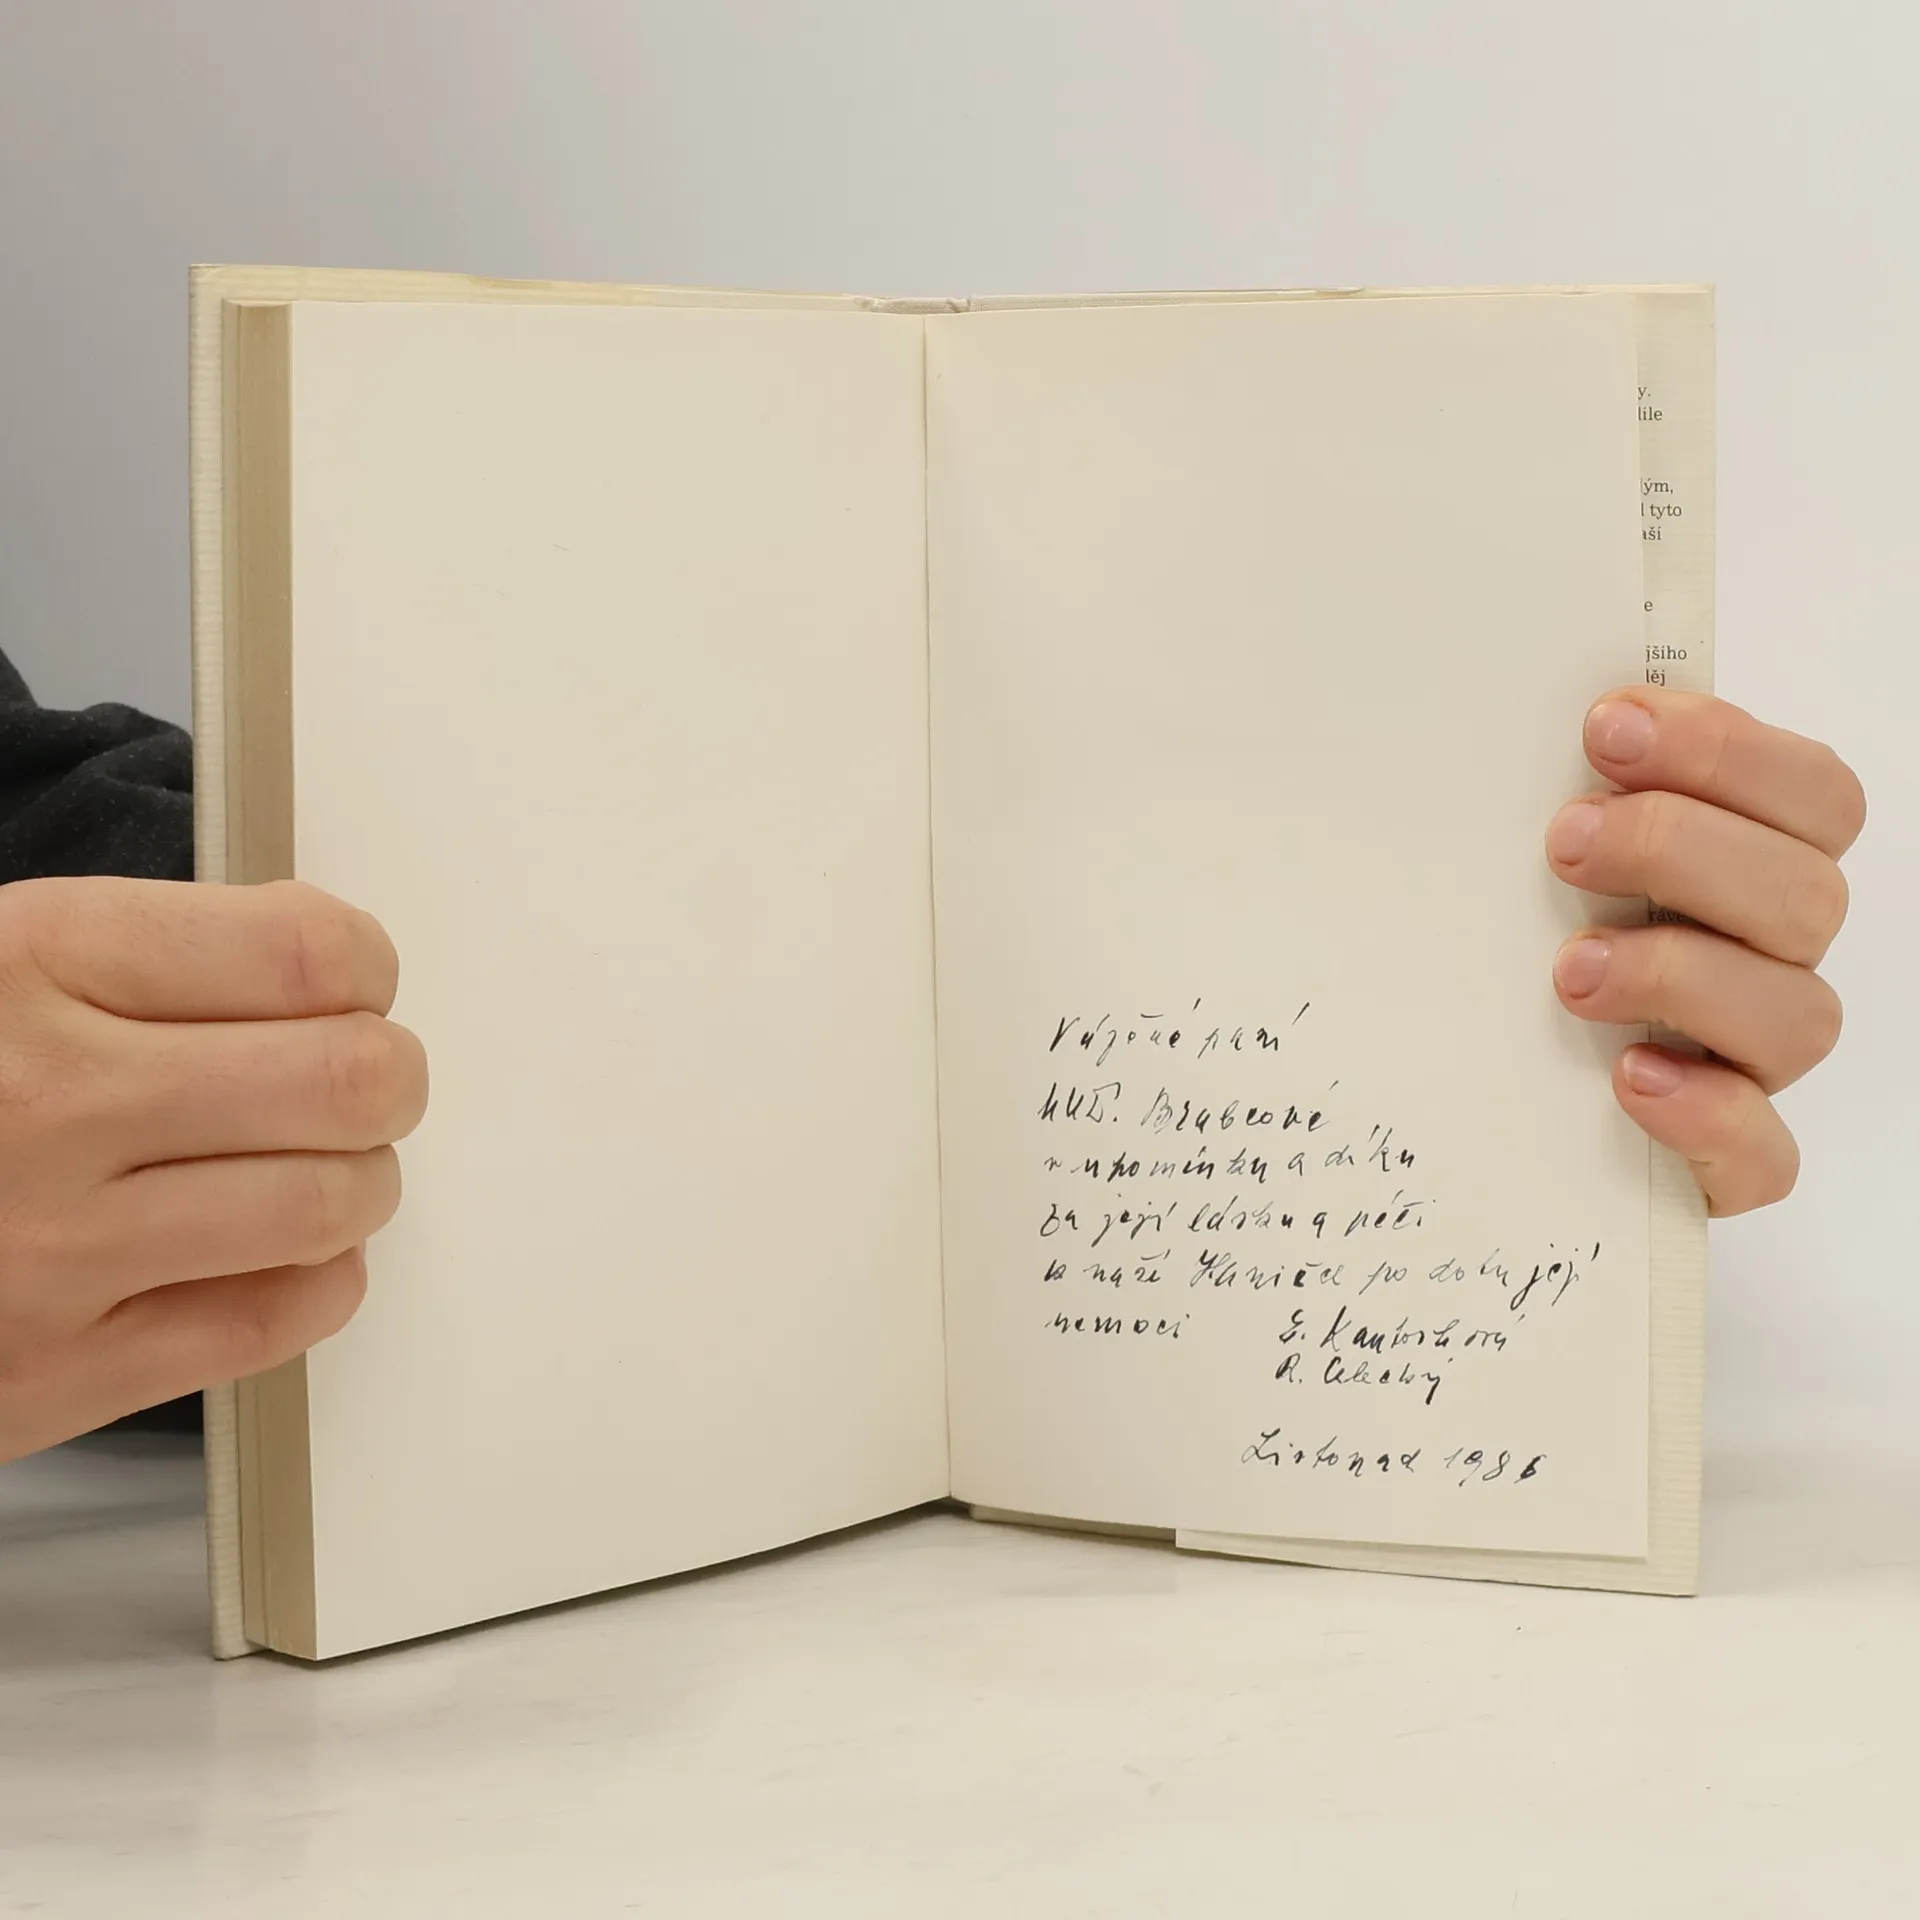 y.
dým,
tyto
aší
e
jšího
děj
ráve
Vážené paní
MUDr. Brabcové
v upomínku a díku
za její lásku a péči
o naší Haničce po dobu její
nemoci
E. Kantorková
R.
Listopad 1986